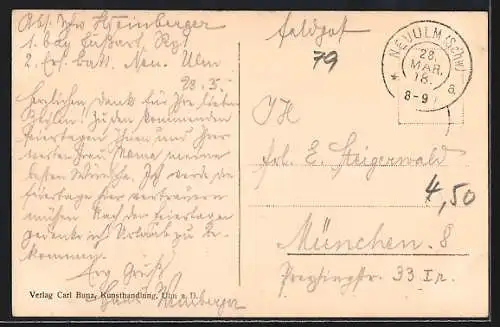 Abs. Steinberger
1. bay. Fußart. Rgt
2. Ers. Batt. Neu. Ulm
28. 3.
Herzlichen Dank für Ihre lieben
Zu den kommenden
Feiertagen Ihnen und Ihrer
werten Frau Mama meine
besten Wünsche. Ich werde die
Feiertage hier
Nach den Feiertagen
gedenke ich Urlaub zu be-
kommen.
Erg. Grüße
Verlag Carl Bunz, Kunsthandlung, Ulm a. D.
Feldpost
79
NEUULM (Schw)
28.
MAR.
18.
* a
8-9
Frl. E. Steigerwald
4,50
München. 8
Preysingstr. 33 I r.